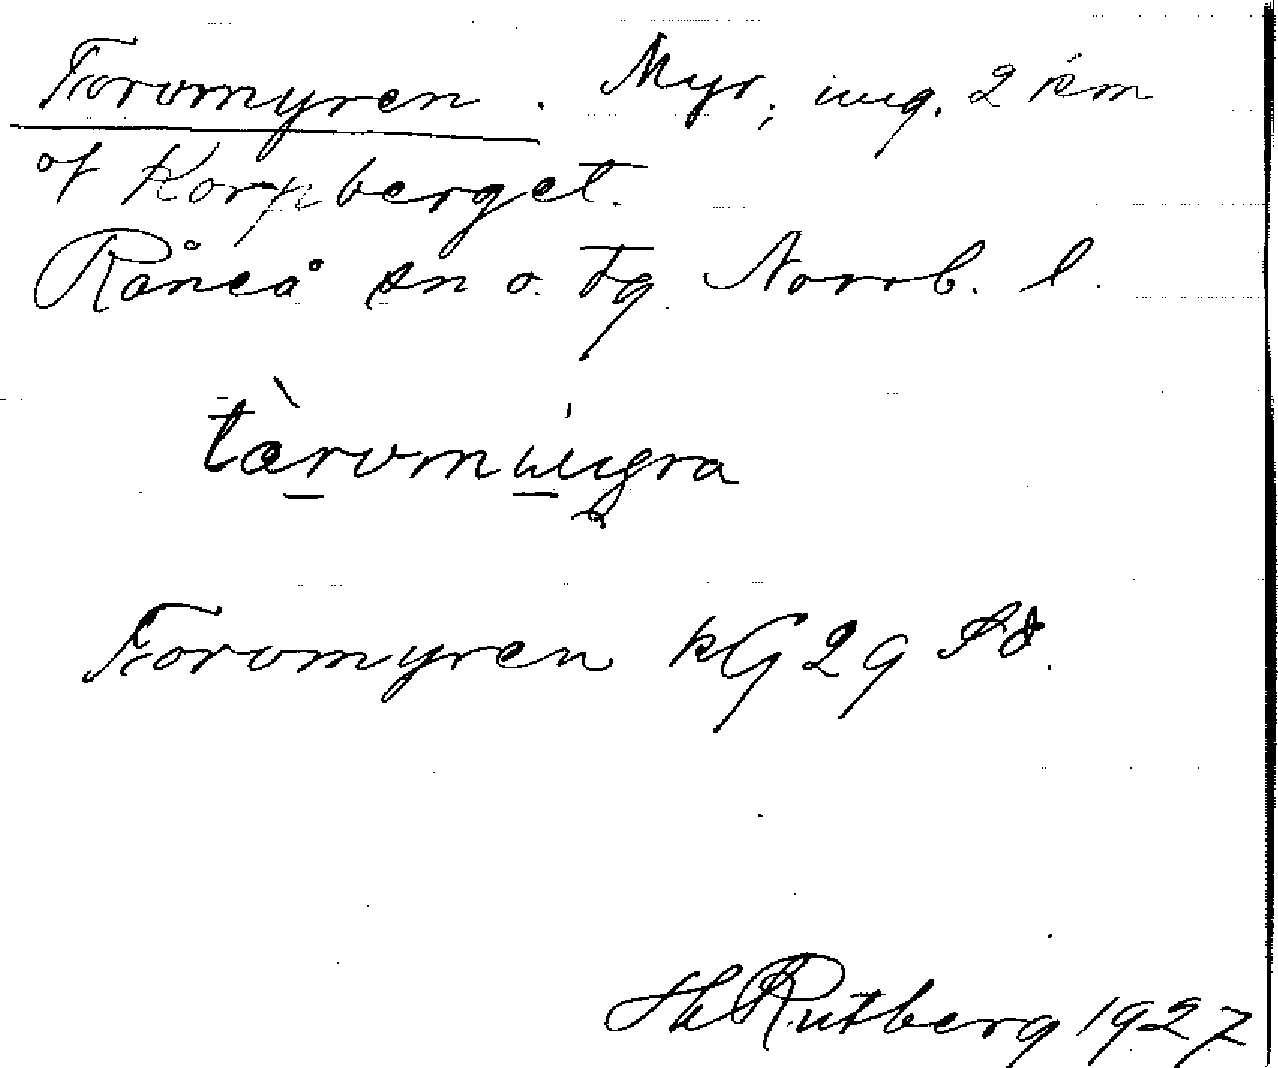 Toromyren. Myr, ung. 2 km
of Korpberget.
Råneå sn o. tg. Norrb. l.
Toromyren kG 29
Hh Rutberg 1927